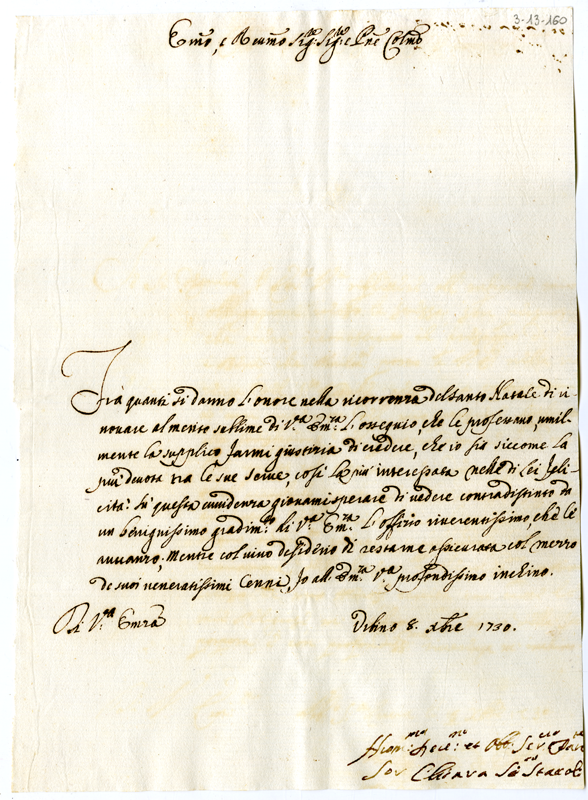 3-13-160
Emo, e Reumo Sig:r Sig:r e Pne Colmo
Frà quanti si danno l'onore nella ricorrenza del santo Natale di ri-
nouare al merito sublime di V.ra Em.za l'ossequio, che le professano, umil-
mente la supplico farmi giustizia di credere, che io sia siccome la
più deuota tra le sue serue, così la più interessata nelle di Lei feli-
cità: Sù questa euidenza giouami sperare di uedere contradistinto da
un benignissimo gradim.to di V.ra Em.za l'offizio riuerentissimo, che le
auuanzo; Mentre col uiuo desiderio di restarne assicurata col mezzo
de suoi ueneratissimi Cenni, Io all' Em.za V.ra profondissimo inchino.
Di V.ra Emza
Vrbino 8. xbre 1730.
Deu.ma et Obb. Ser.
Sor Chiara